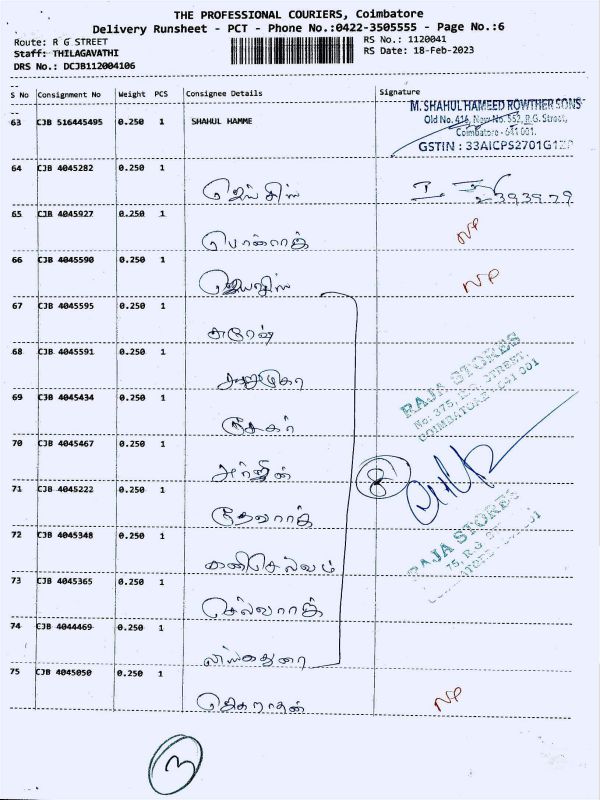 THE PROFESSIONAL COURIERS, Coimbatore
Delivery Runsheet - PCT - Phone No.:0422-3505555 - Page No.:6
Route: R G STREET
RS No.: 1120041
Staff: THILAGAVATHI
RS Date: 18-Feb-2023
DRS No.: DCJB112004106
S No Consignment No Weight PCS Consignee Details Signature
63 CJB 516445495 0.250 1 SHAHUL HAMME
M. SHAHUL HAMEED ROWTHER SONS
Old No. 416, New No. 552, R.G. Street,
Coimbatore - 641 001.
GSTIN : 33AICPS2701G1ZP
64 CJB 4045282 0.250 1
65 CJB 4045927 0.250 1
பொன்ராஜ் NP
66 CJB 4045590 0.250 1
NP
67 CJB 4045595 0.250 1
சுரேஷ்
68 CJB 4045591 0.250 1
RAJA STORES
No. 375, R.G. STREET,
COIMBATORE - 641 001
69 CJB 4045434 0.250 1
சேகர்
70 CJB 4045467 0.250 1
அர்ஜுன்
8
71 CJB 4045222 0.250 1
தேவராஜ்
RAJA STORES
72 CJB 4045348 0.250 1
கனிசெல்வம்
73 CJB 4045365 0.250 1
செல்வராஜ்
74 CJB 4044469 0.250 1
75 CJB 4045050 0.250 1
ஜெகநாதன் NP
3